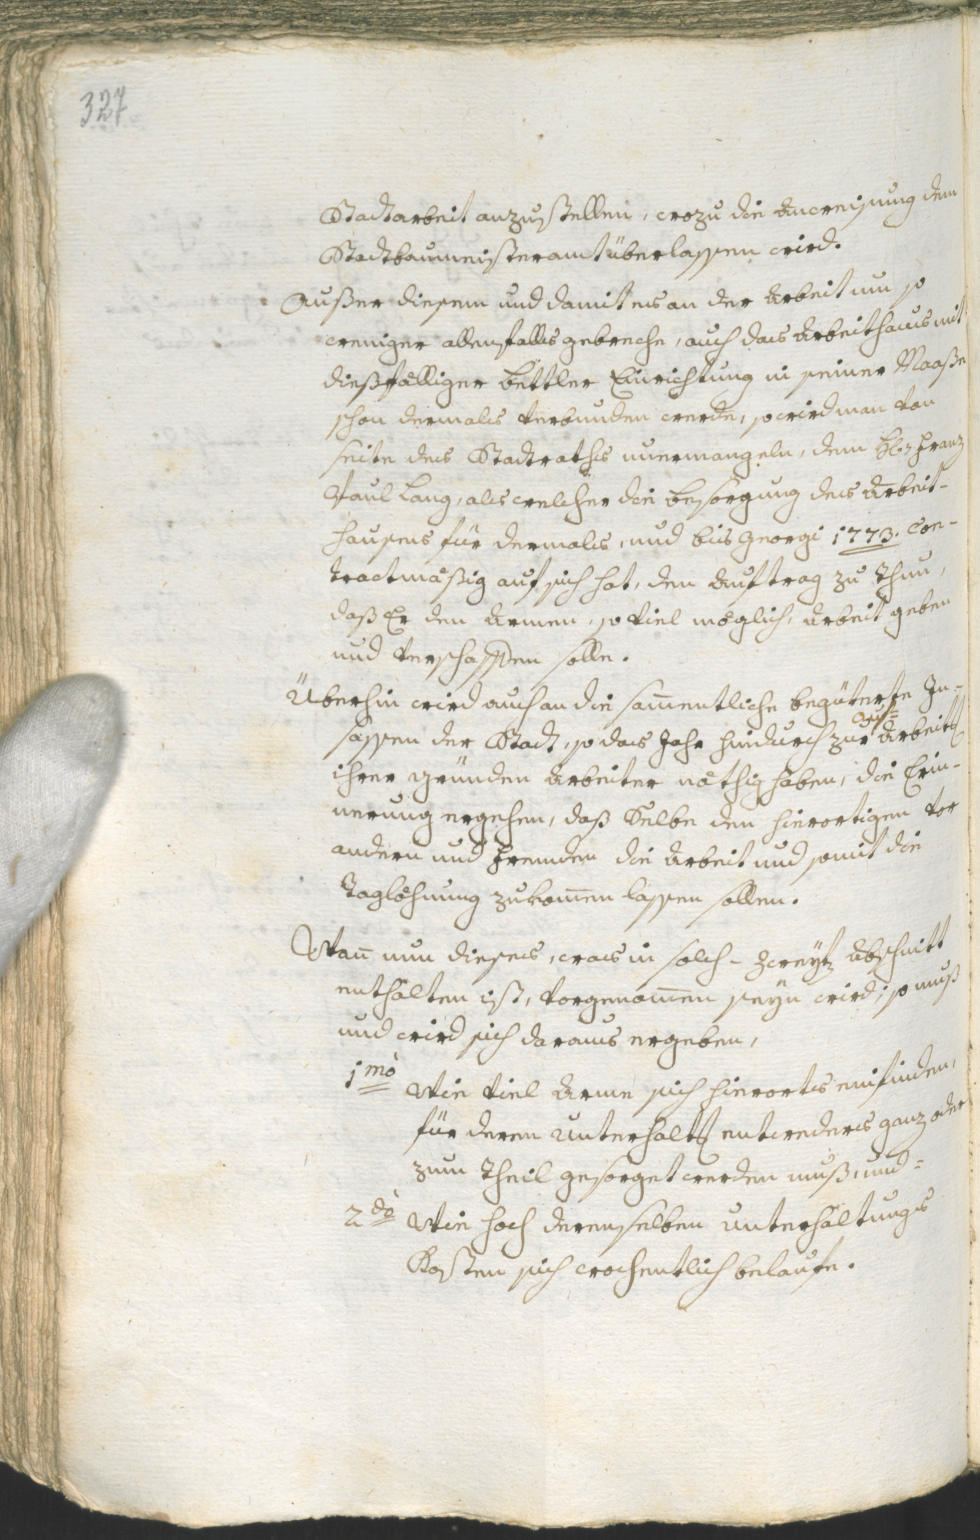 327
Stadtarbeit anzustellen, wozu die Anweisung dem
Stadtbaumeisteramt überlassen wird.
Außer diesem und damit es an der Arbeit um so
weniger allenfalls gebreche, auch das Arbeithaus mit
dießfälliger Bettler Einrichtung in seiner Maaße
schon dermals verbunden werde, so wird man von
seite des Stadtraths unermangeln, dem H: Franz
Paul Lang, als welcher die Besorgung des Arbeit-
hauses für dermals, und bis Georgi 1773. Con-
tractmäßig auf sich hat, den Auftrag zu thun,
daß Er den Armen, so viel möglich, Arbeit geben
und verschaffen solle.
Überhin wird auch an die sam̄entliche begüterte In-
sassen der Stadt, so das Jahr hindurch zur Arbeit
ihrer gründen Arbeiter nöthig haben, die Erin-
nerung ergehen, daß Selbe den hierortigen vor
andern und Fremden die Arbeit und somit die
Taglöhnung zukom̄en lassen sollen.
Wan̄ nun dieses, was in solch- Zweytz Abschnitt
enthalten ist, vorgenom̄en seyn wird; so muß
und wird sich daraus ergeben,
1mò Wie viel Arme sich hierorts einfinden,
für deren Unterhalt entweders ganz oder
zum Theil gesorget werden muß, und=
2dò Wie hoch derenselben Unterhaltungs
Kosten sich wochentlich belaufe.